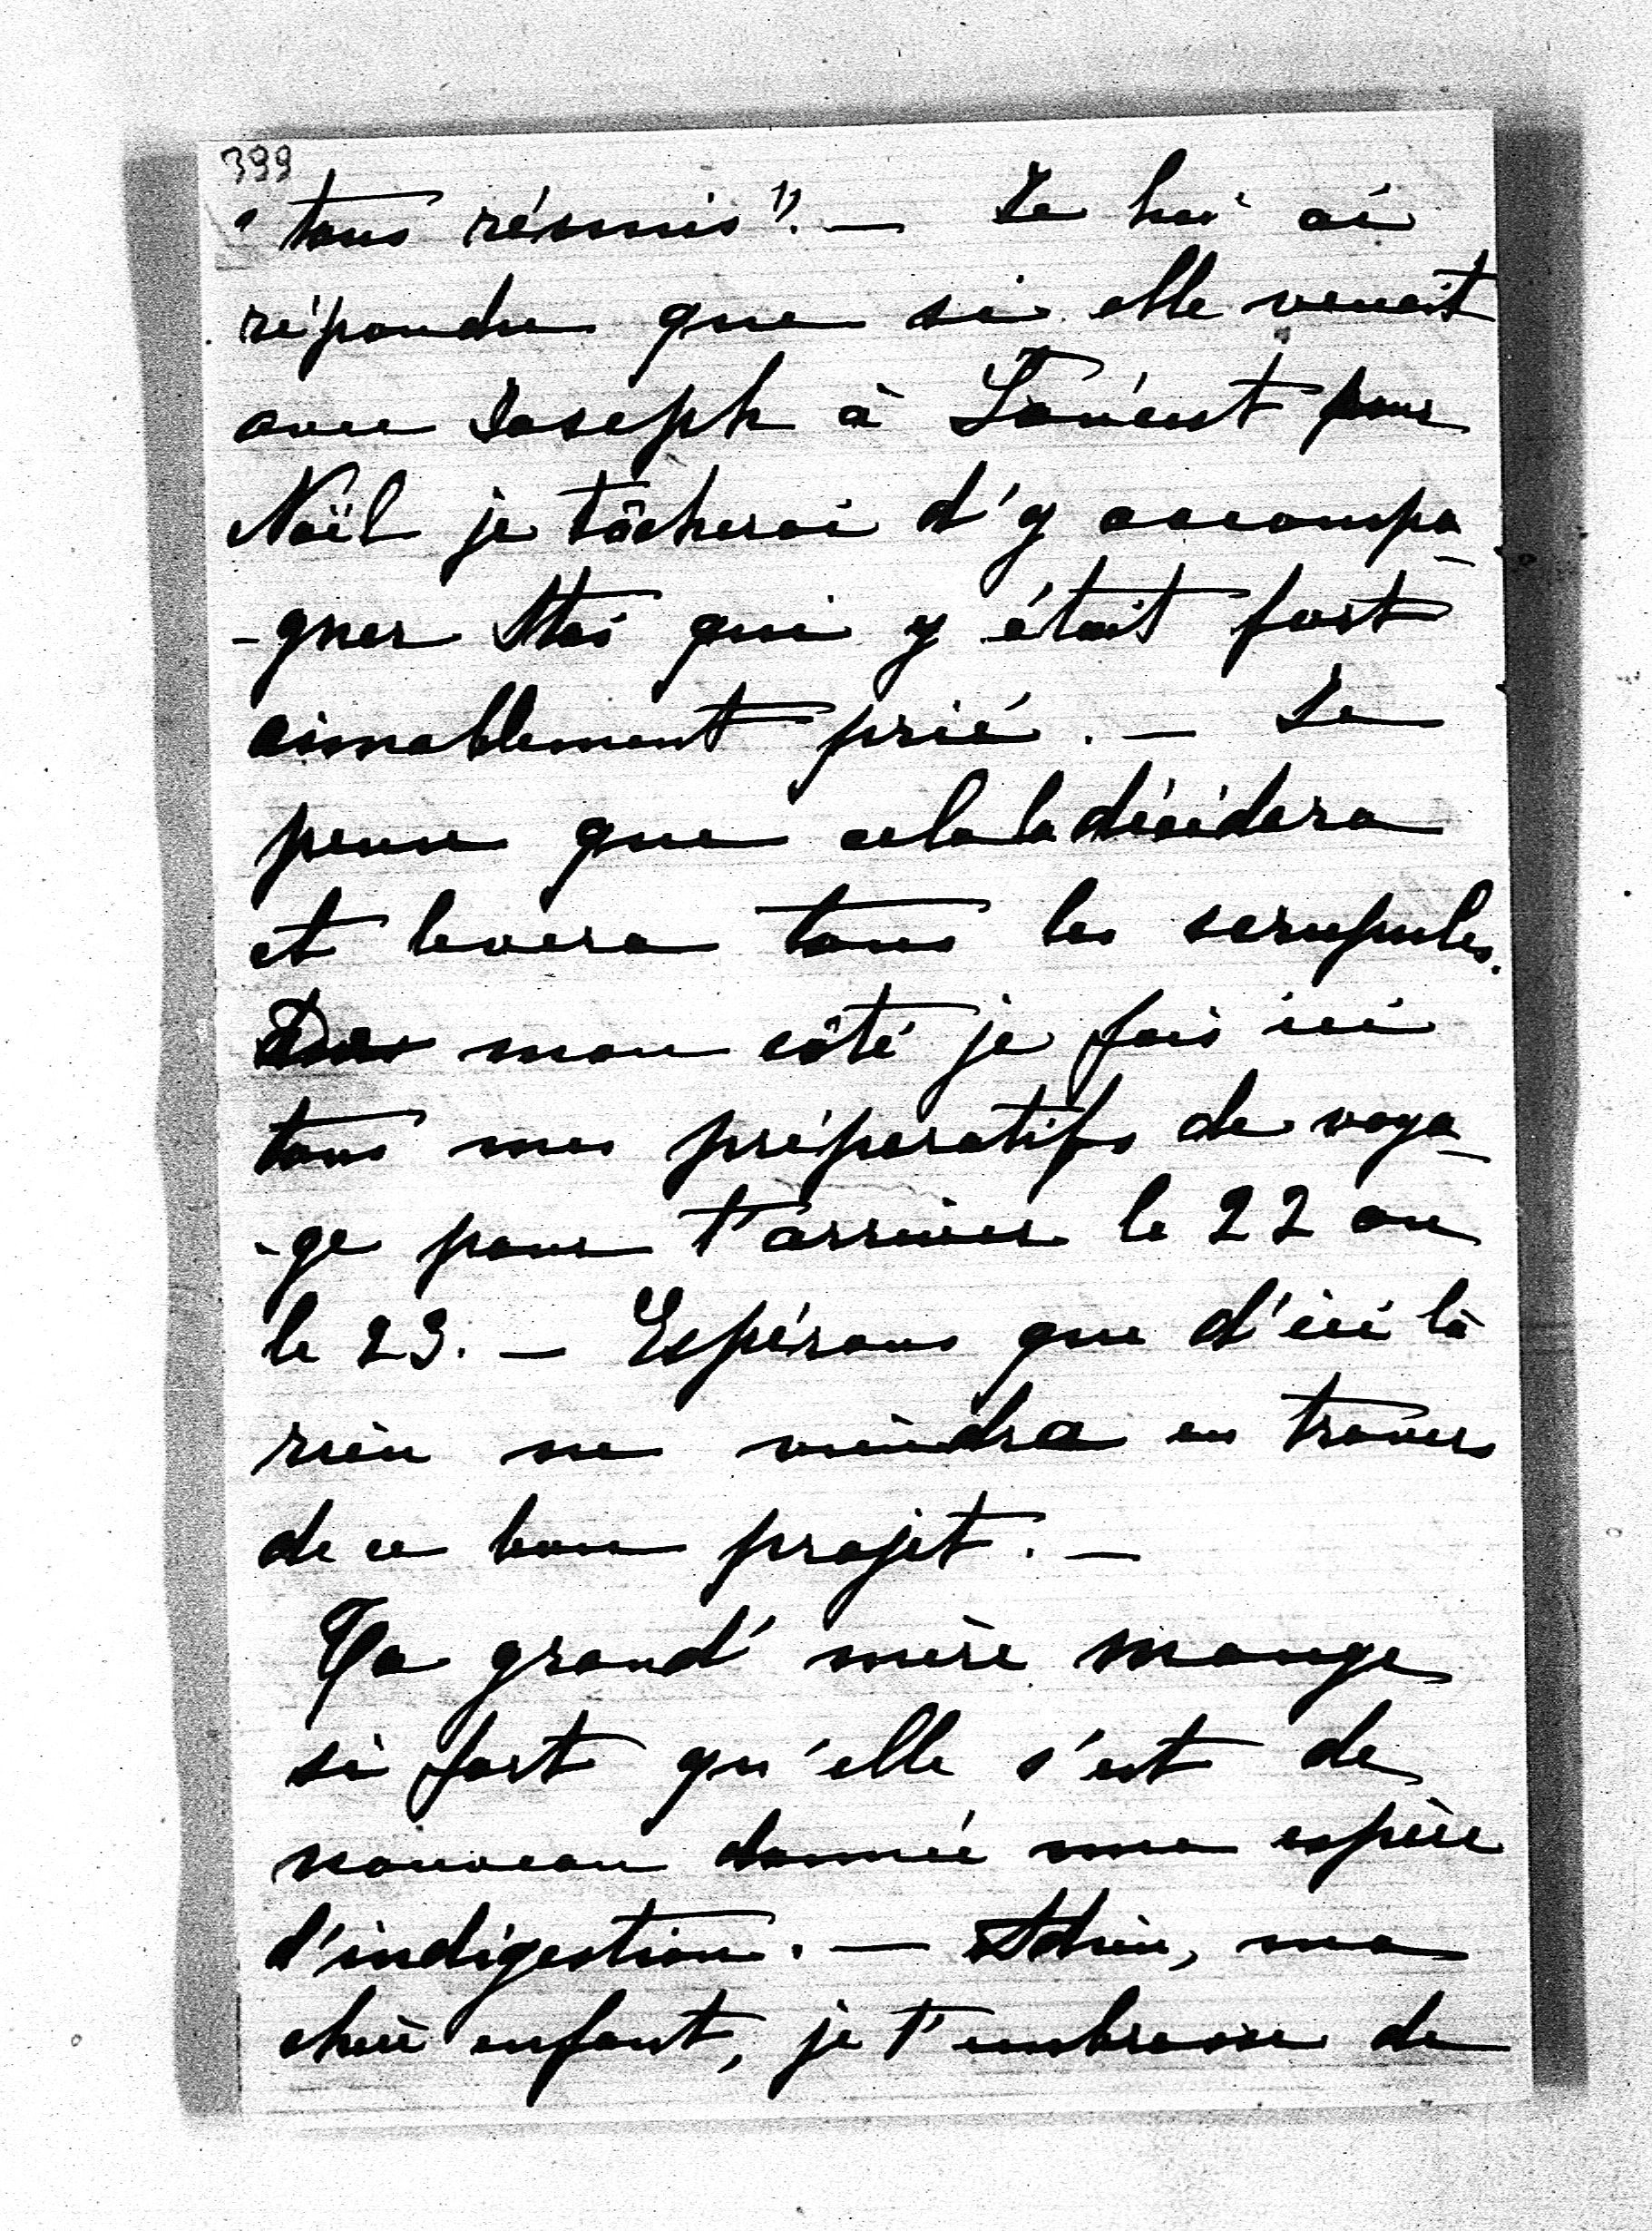 399
"tous réunis". — Je lui ai
répondu que si elle venait
avec Joseph à pour
Noël je tâcherai d'y accompa
-gner qui y était fort
aimablement prié. — Je
pense que cela la décidera
et levera tous les scrupules.
De mon côté je fais ici
tous mes préparatifs de voya
-ge pour t'arriver le 22 ou
le 23. — Espérons que d'ici là
rien ne viendra en travers
de ce bon projet. —
Ta grand'mère mange
si fort qu'elle s'est de
nouveau donnée une espèce
d'indigestion. — Adieu, ma
chère enfant, je t'embrasse de